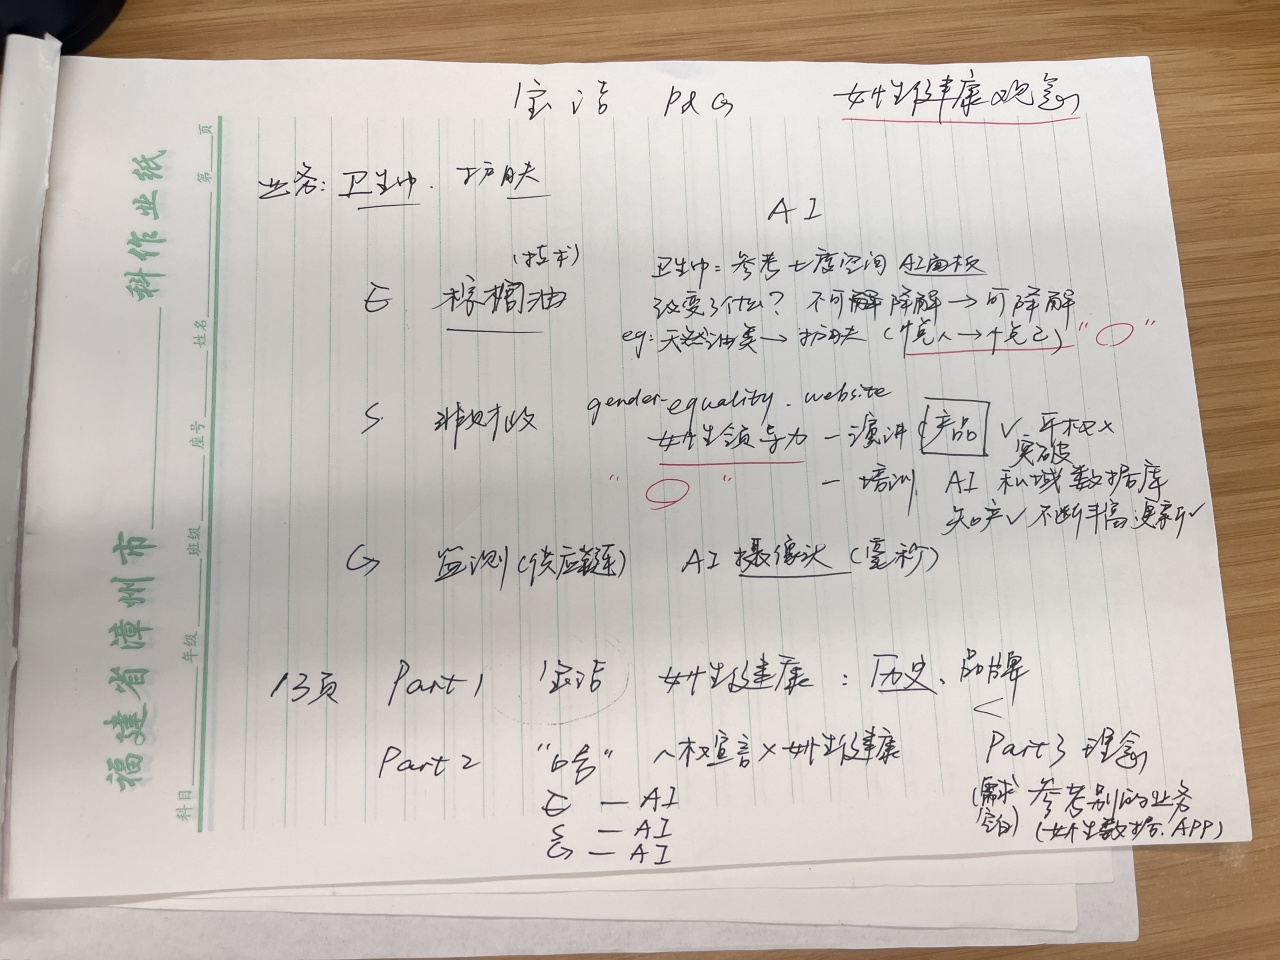 宝洁 P&G 女性健康观念
业务: 卫生巾. 护肤
AI
(技术)
E 棕榈油
卫生巾: 参考七度空间 AI面板
改变了什么? 不可降解→可降解
eg: 天然油类→护肤 (悦人→悦己) " "
S 非财政
gender-equality. website
女性领导力 —演讲 产品 ✓ 平权×
突破
" " —培训 AI 私域数据库
知产✓ 不断丰富更新✓
G 监测(供应链) AI 摄像头 (毫秒)
13页 Part1 宝洁 女性健康: 历史、品牌
Part2 "口号" 人权宣言×女性健康
Part3 理念
E — AI
S — AI
G — AI
(需求 空白)
参考别的业务
(女性数据. APP)
福建省漳州市
科作业纸
第 页
科目 年级 班级 座号 姓名